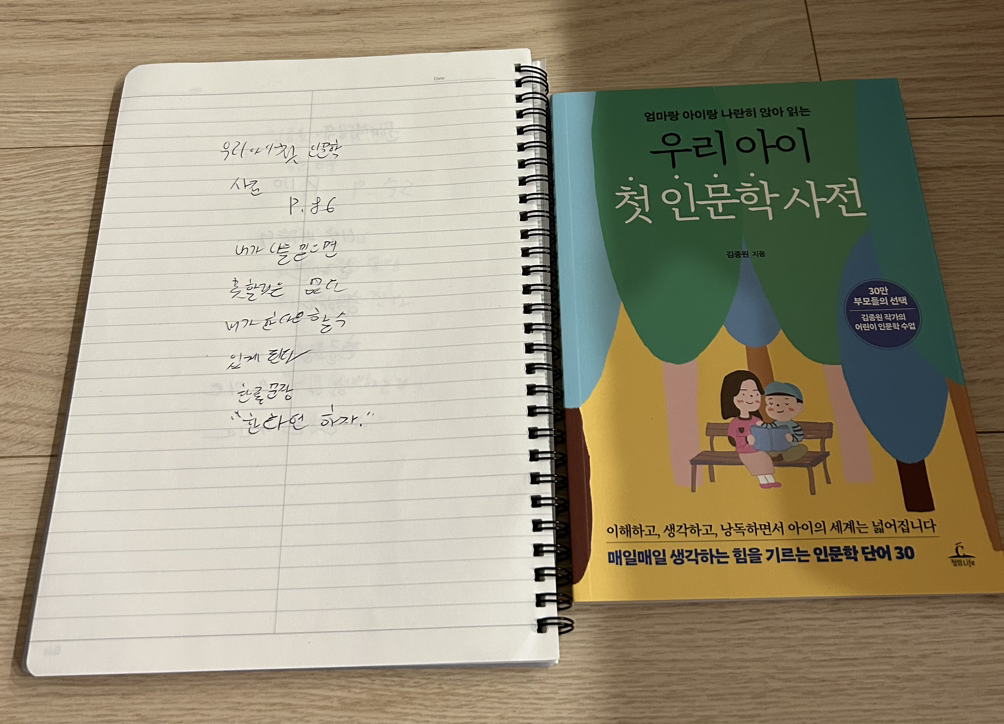 Date
우리아이 첫 인문학
사전
P. 86
내가 나를 믿으면
흔할
내가 한다면 할 수
있게 된다
한 줄 문장
"한다면 하자."
엄마랑 아이랑 나란히 앉아 읽는
우리 아이
첫 인문학 사전
김종원 지음
30만
부모들의 선택
김종원 작가의
어린이 인문학 수업
이해하고, 생각하고, 낭독하면서 아이의 세계는 넓어집니다
매일매일 생각하는 힘을 기르는 인문학 단어 30
청림Life